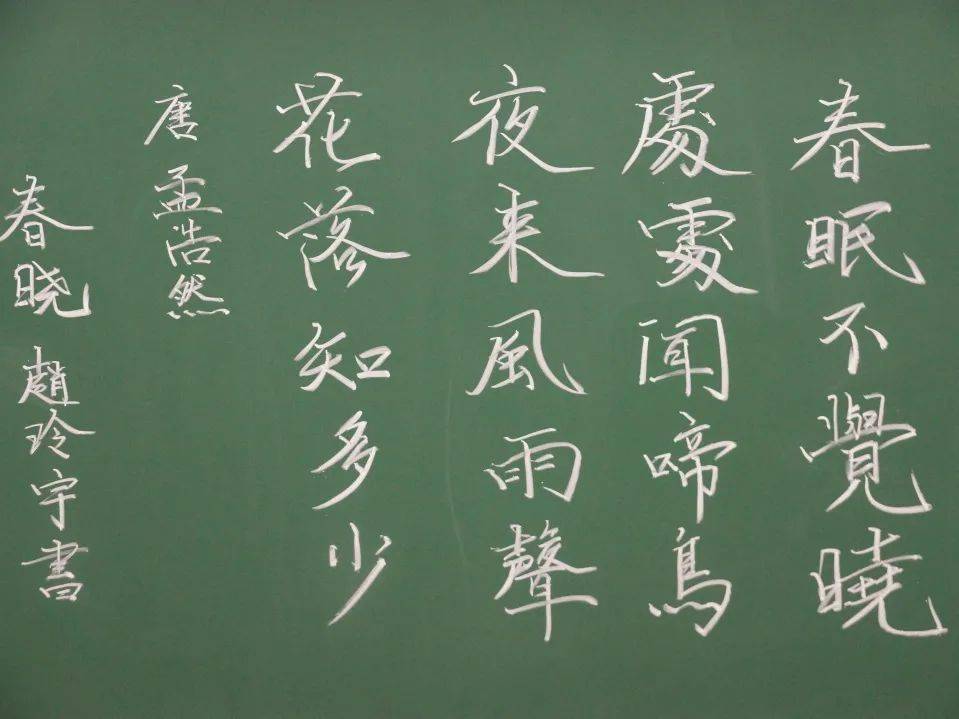 春眠不覺曉
處處闻啼鳥
夜来風雨聲
花落知多少
唐 孟浩然
春晓 趙玲宇書